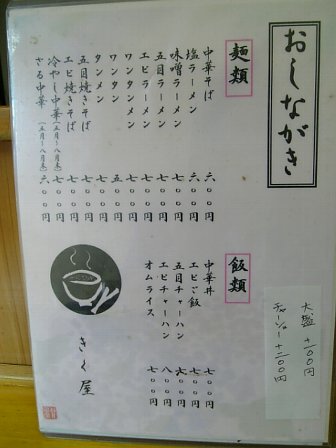 おしながき
大盛 +100円
チャーシュー +200円
麺類
中華そば 六〇〇円
塩ラーメン 六〇〇円
味噌ラーメン 七〇〇円
五目ラーメン 七〇〇円
エビラーメン 七〇〇円
ワンタンメン 七〇〇円
ワンタン 五〇〇円
タンメン 七〇〇円
五目焼きそば 七〇〇円
エビ焼きそば 七〇〇円
冷やし中華(五月〜八月末) 七〇〇円
ざる中華(五月〜八月末) 六〇〇円
飯類
中華丼 七〇〇円
エビご飯 七〇〇円
五目チャーハン 六〇〇円
エビチャーハン 八〇〇円
オムライス 七〇〇円
きく屋